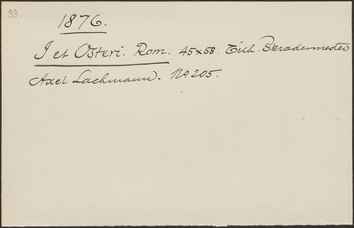 33
1876.
I et Osteri. Rom. 45x58. Tilh.
Axel Lachmann. No 205.